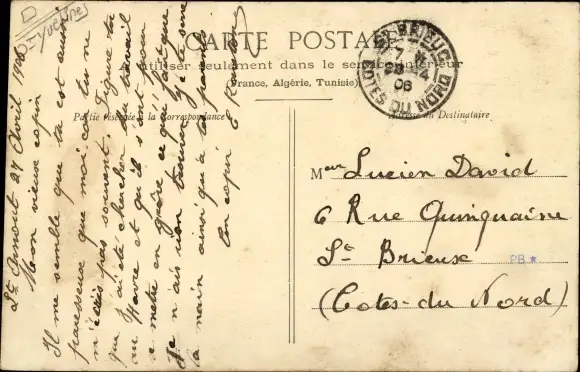 CARTE POSTALE
A utiliser seulement dans le service intérieur
(France, Algérie, Tunisie)
Partie réservée à la Correspondance
Adresse du Destinataire
ST BRIEUC
7
28 -4
06
COTES DU NORD
Yvonnes
St Arnout 27 Avril 1906
Mon vieux copin
Il me semble que tu est aussi
paresseuse que moi, car tu ne
m'écris pas souvent. Figure tu
que j'ai été chercher du travail
au Havre et qu'il s'sont pour
e mettre en grève ce qui fait que
Je n ais rien trouvé. Je te sire
la main ainsi qu'à tes parents
Ton copin
Meur Lucien David
6 Rue Quinquaine
St Brieuse
(Cotes-du Nord)
PB *